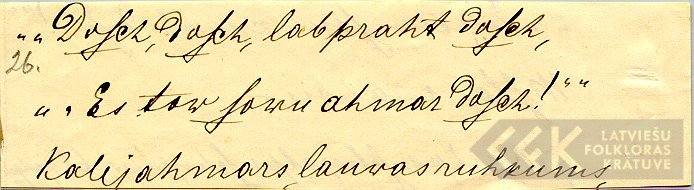 „„Doſch, doſch, labpraht doſch,
26.
„„Es tow ſowu ahmar doſch!““
Kalejahmars, lauwas ruhkums,
LATVIEŠU
FOLKLORAS
KRĀTUVE